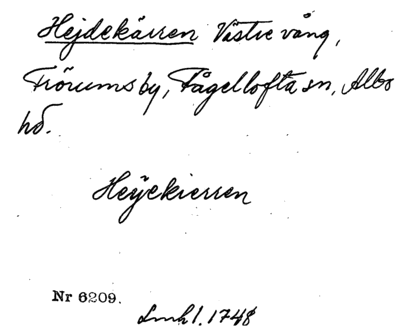 Hejdekärren Västre vång,
Frörums by, Fågellofta sn, Albo
hd.
Heÿekierren
Nr 6209.
Lmhl. 1748